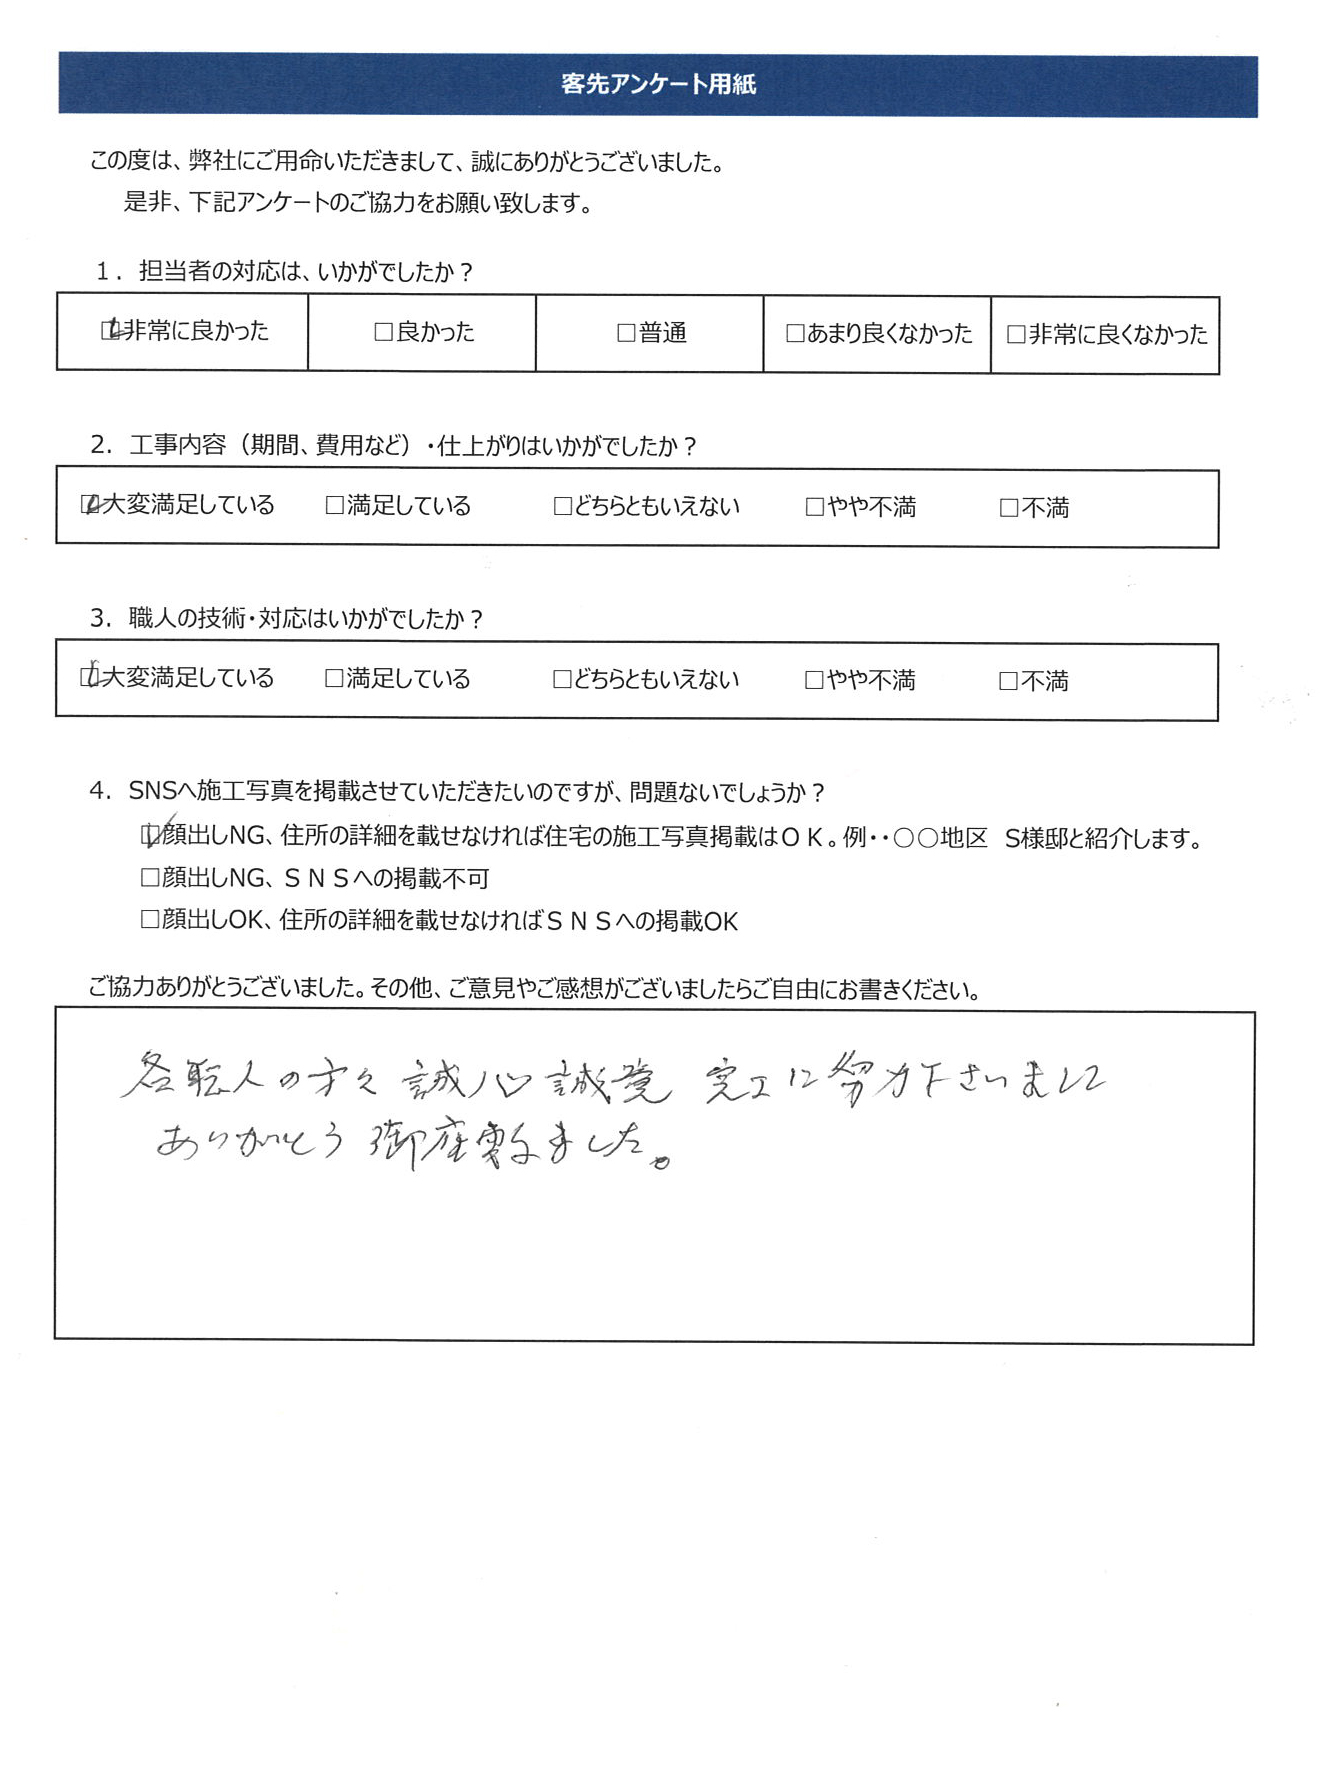 客先アンケート用紙
この度は、弊社にご用命いただきまして、誠にありがとうございました。
是非、下記アンケートのご協力をお願い致します。
1. 担当者の対応は、いかがでしたか？
☑非常に良かった □良かった □普通 □あまり良くなかった □非常に良くなかった
2. 工事内容（期間、費用など）・仕上がりはいかがでしたか？
☑大変満足している □満足している □どちらともいえない □やや不満 □不満
3. 職人の技術・対応はいかがでしたか？
☑大変満足している □満足している □どちらともいえない □やや不満 □不満
4. SNSへ施工写真を掲載させていただきたいのですが、問題ないでしょうか？
☑顔出しNG、住所の詳細を載せなければ住宅の施工写真掲載はＯＫ。例・・〇〇地区 S様邸と紹介します。
□顔出しNG、ＳＮＳへの掲載不可
□顔出しOK、住所の詳細を載せなければＳＮＳへの掲載OK
ご協力ありがとうございました。その他、ご意見やご感想がございましたらご自由にお書きください。
各職人の方々 誠心誠 完工に努力下さいまして
ありがとう御座ました。